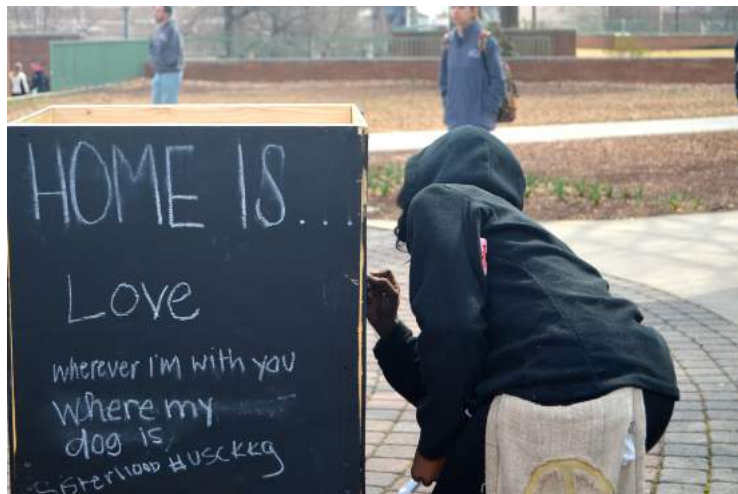 HOME IS...
Love
wherever I'm with you
where my
dog is
Sisterhood #USCKKG